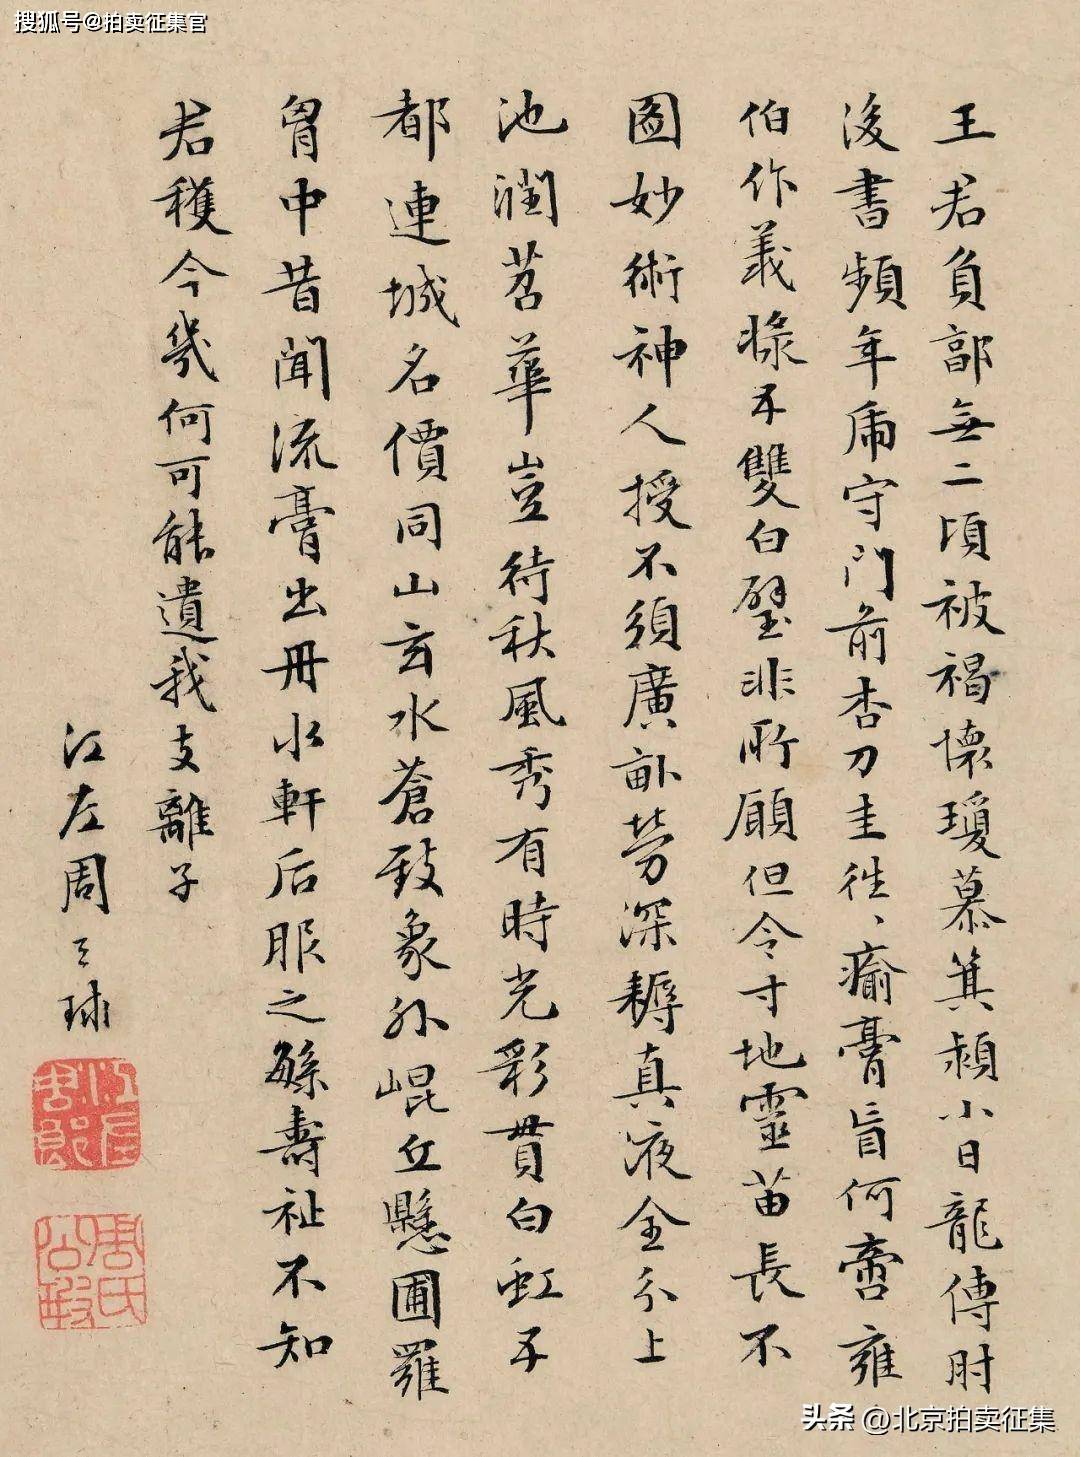 搜狐号@拍卖征集官
王君負郭無二頃被褐懷瓊慕箕潁小日龍傳肘
後書頻年虎守門前杏刀圭往、瘉膏肓何啻雍
伯作義漿不雙白璧非所願但令寸地靈苗長不
圖妙術神人授不須廣畝勞深耨真液全分上
池潤苕華豈待秋風秀有時光彩貫白虹子
都連城名價同山玄水蒼致象外崐丘懸圃羅
胷中昔聞流膏出丹水軒后服之緐壽祉不知
君穫今幾何可能遺我支離子
江左周天球
頭条 @北京拍卖征集